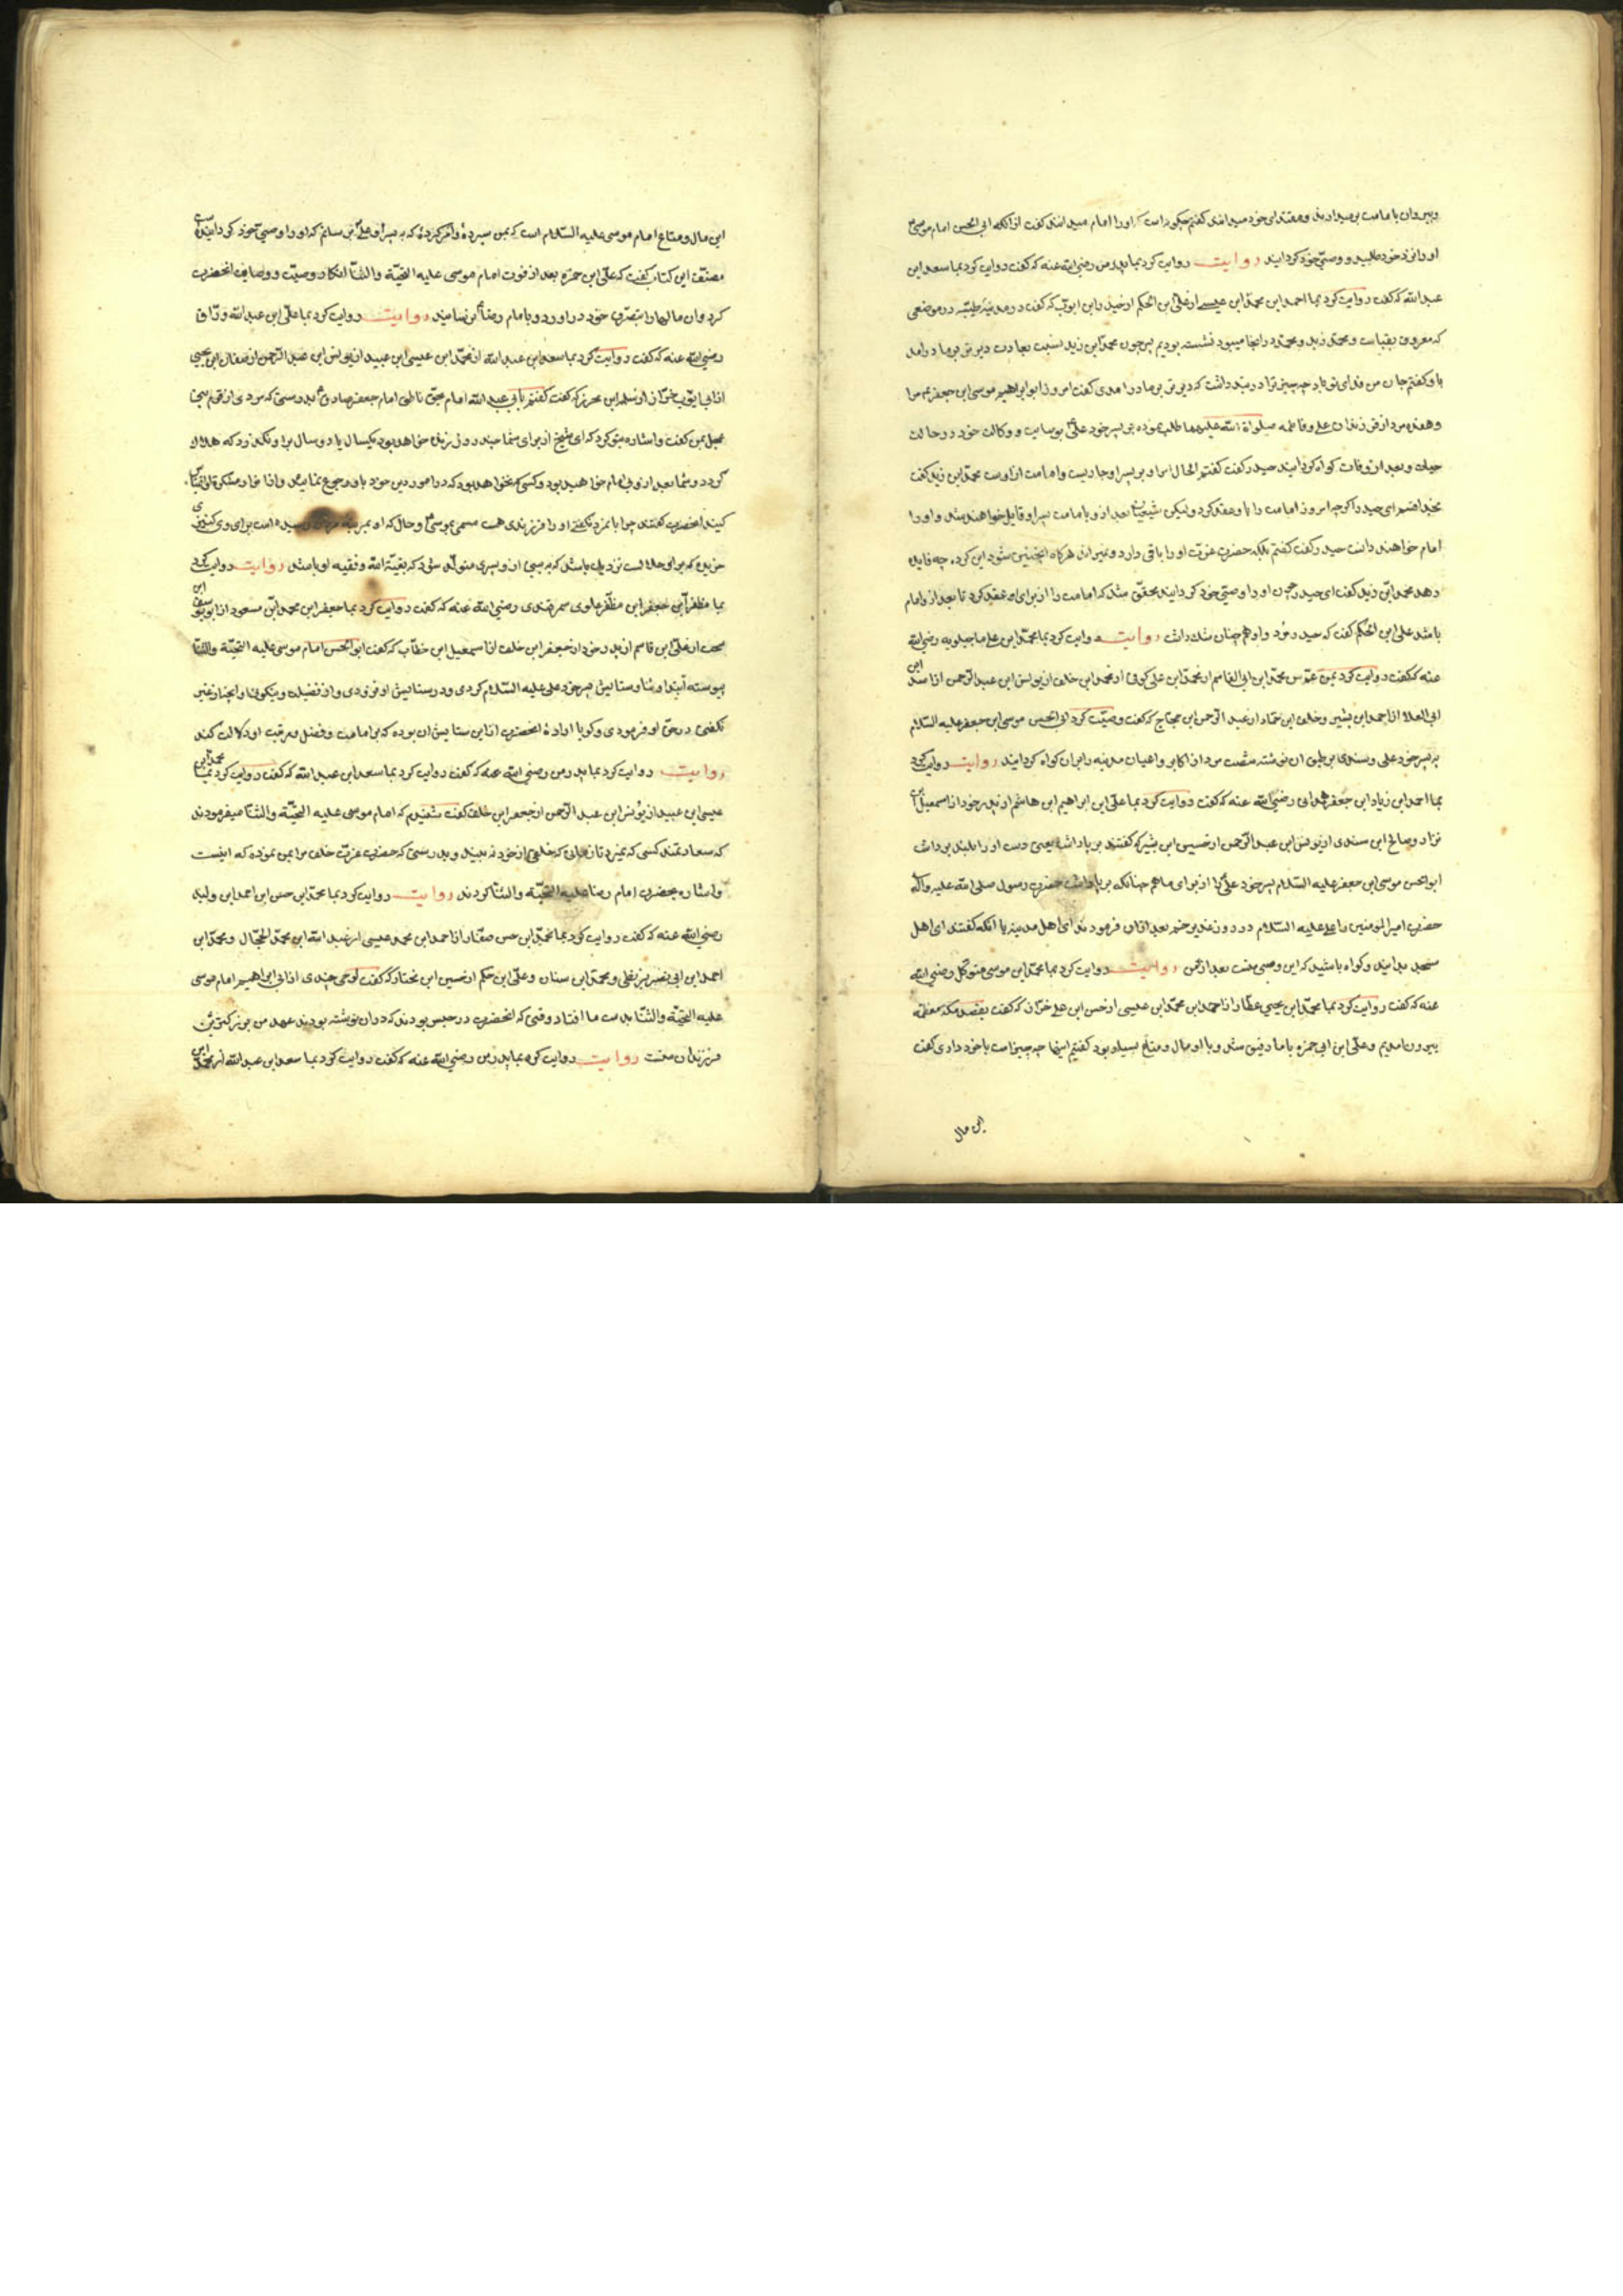 و پیروان با مامت برمیدارند و مقتدای خود میدانند کفتم چکونه است که او را امام میدانند کفت از انکه ابی الحسن امام موسی
او را نزد خود طلبید و وصی خود کردانید روایت روایت کرد بما پدر من رضی الله عنه که کفت روایت کرد بما سعد ابن
عبد الله که کفت روایت کرد بما احمد ابن محمد ابن عیسی از علی ابن الحکم از حیدر ابن ایوب که کفت در مدینه طیبه در موضعی
که معروف بقباست و محمد زید و محمد در انجا میبود نشسته بودیم پس چون محمد ابن زید نسبت بعادت دیر تر بر ما در امد
با و کفتم جان من فدای تو باد چه چیز ترا در بند داشت که دیر تر بر ما در امدی کفت امروز ابو ابراهیم موسی ابن جعفر مرا
و هفده مرد از فرزندان علی و فاطمه صلواة الله علیهما طلب نموده بر پسر خود علی بوصایت و وکالت خود در حالت
حیات و بعد از وفات کواه کردانید حیدر کفت کفتم الحال امر او بر پسر او جاریست و امامت از اوست محمد ابن زید کفت
بخدا قسم ای حیدر اکرچه امروز امامت را با و عقد کرد ولیکن شیعیان بعد از و بامامت پسر او قایل خواهند شد و او را
امام خواهند دانست حیدر کفت کفتم بلکه حضرت عزت او را باقی دارد و نمیراند هرکاه اینچنین شود این کرده چه فایده
دهد محمد ابن زید کفت ای حیدر چون او را وصی خود کردانید محقق شد که امامت را از برای او عقد کرد تا بعد از و امام
باشد علی ابن الحکم کفت که حیدر مرد و او هم چنان شک داشت روایت روایت کرد بما محمد ابن علی ماجیلویه رضی الله
عنه که کفت روایت کرد بمن عم من محمد ابن ابی القاسم از محمد ابن علی کوفی از محمد ابن خلف از یونس ابن عبد الرحمن از اسد ابن
ابی العلا از احمد ابن بشیر و خلف ابن حماد از عبد الرحمن ابن حجاج که کفت وصیت کرد ابی الحسن موسی ابن جعفر علیه السلام
بر پسر خود علی و سندی بر طبق ان نوشته شصت مرد از اکابر و اعیان مدینه را بران کواه کردانید روایت روایت کرد
بما احمد ابن زیاد ابن جعفر همدانی رضی الله عنه که کفت روایت کرد بما علی ابن ابراهیم ابن هاشم از پدر خود از اسمعیل ابن
مرار و صالح ابن سندی از یونس ابن عبد الرحمن از حسین ابن بشیر که کفتند بر پا داشت یعنی دست او را بلند برداشت
ابو الحسن موسی ابن جعفر علیه السلام پسر خود علی را از برای ما هم چنانکه بر پا داشت حضرت رسول صلی الله علیه و آله
حضرت امیر المومنین را علی علیه السلام در روز غدیر خم بعد ازان فرمودند ای اهل مدینه یا انکه کفتند ای اهل
مسجد بدانید و کواه باشید که این وصی منست بعد از من روایت روایت کرد بما محمد ابن موسی متوکل رضی الله
عنه که کفت روایت کرد بما محمد ابن یحیی عطار از احمد ابن محمد ابن عیسی از حسن ابن علی خزاز که کفت بقصد مکه معظمه
بیرون امدیم و علی ابن ابی حمزه با ما رفیق شد و با او مال و متاع بسیار بود کفتم اینها چه چیز است با خود داری کفت
این مال
این مال و متاع امام موسی علیه السلام است که بمن سپرده و امر کرده که به پسر او علی برسانم که او را وصی خود کردانیده است
مصنف این کتاب کفت که علی ابن حمزه بعد از فوت امام موسی علیه التحیة و الثنا انکار وصیت و وصایت انحضرت
کرد وان مالها را بتصرف خود در اورد و بامام رضا نرسانید روایت روایت کرد بما علی ابن عبد الله وراق
رضی الله عنه که کفت روایت کرد بما سعد ابن عبد الله از محمد ابن عیسی ابن عبید از یونس ابن عبد الرحمن از صفوان ابن یحیی
از ابی ایوب خزاز از سلمه ابن محرز که کفت کفتم بابی عبد الله امام بحق ناطق امام جعفر صادق بدرستی که مردی از قوم
عجل بمن کفت و اشاره بتو کرد که ای شیخ از برای شما چند روز زنده خواهد بود یکسال یا دو سال برو نکذرد که هلاک
کردد و شما بعد از و بی امام خواهید بود و کسی نخواهد بود که در امور دین خود باو رجوع نمایید
کیند انحضرت کفتند چرا با نمرد نکفتی او را فرزندی هست مسمی بموسی و حال که او بمرتبه مردی رسیده است برای وی کنیزی
خریده که بر او حلالست نزدیک باشد که به بینی از و پسری متولد شود که بقیة الله و فقیه او باشد روایت روایت کرد
بما مظفر ابن جعفر ابن مظفر علوی سمرقندی رضی الله عنه که کفت روایت کرد بما جعفر ابن محمد ابن مسعود از ابو یوسف ابن
سخت از علی ابن قاسم از پدر خود از جعفر ابن خلف از اسمعیل ابن خطاب که کفت ابو الحسن امام موسی علیه التحیة و الثنا
پیوسته ابتدا و ثنا و ستایش پسر خود علی علیه السلام کردی و در ستایش او فزودی و از فضیلت و نیکوئیها و انچه از غیر
نکفتی در حق او فرمودی و کویا ارادۀ انحضرت از این ستایش ان بوده که بر امامت و فضل و مرتبت او دلالت کند
روایت روایت کرد بما پدر من رضی الله عنه که کفت روایت کرد بما سعد ابن عبد الله که کفت روایت کرد بما محمد ابن
عیسی ابن عبید از یونس ابن عبد الرحمن از جعفر ابن خلف که کفت شنیدم که امام موسی علیه التحیة و الثنا میفرمودند
که سعادتمند کسی که نمیرد تا زمانی که خلفی از خود نه بیند و بدرستی که حضرت عزت خلف مرا بمن نموده که اینست
و اشاره بحضرت امام رضا علیه التحیة و الثنا کردند روایت روایت کرد بما محمد ابن حسن ابن احمد ابن ولید
رضی الله عنه که کفت روایت کرد بما محمد ابن حسن صفار از احمد ابن محمد عیسی از عبد الله ابن محمد الحجال و محمد ابن
احمد ابن ابی نصر بزنطی و محمد ابن سنان و علی ابن حکم از حسین ابن مختار که کفت لوحی چندی از ابی ابراهیم امام موسی
علیه التحیة و الثنا بدست ما افتاد وقتی که انحضرت در حبس بودند که دران نوشته بودند عهد من بزرکترین
فرزندان منست روایت روایت کرد بما پدر من رضی الله عنه که کفت روایت کرد بما سعد ابن عبد الله از محمد ابن